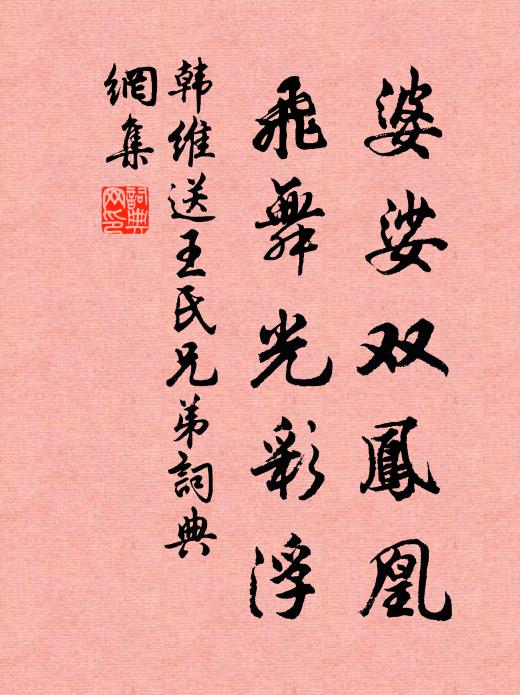 婆娑双鳳凰
飛舞光彩浮
韩維送王氏兄弟詞典
網集
詞典
网印